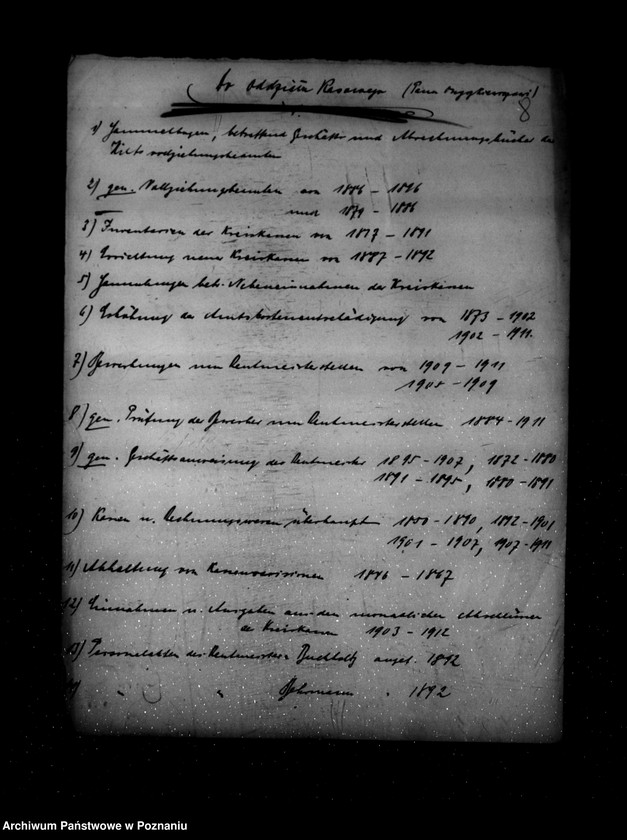 do Oddziału Kasowego (Pana
8
1) Sammelbogen, betreffend Geschäfts und Abrechnungsbücher der
Vollziehungsbeamten
2) gen. Vollziehungsbeamten von 1886 - 1896
und 1879 - 1886
3) Inventarien der Kreiskassen von 1877 - 1891
4) Errichtung neuer Kreiskassen von 1887 - 1892
5) Sammelbogen betr. Nebeneinnahmen der Kreiskassen
6) Erhöhung der Amtskostenentschädigung von 1873 - 1902
1902 - 1911.
7) Bewerbungen um Rentmeisterstellen von 1909 - 1911
1905 - 1909
8) gen. Prüfung der Bewerber um Rentmeisterstellen 1884 - 1911
9) gen. Geschäftsanweisung der Rentmeister 1895 - 1907, 1872 - 1880
1891 - 1895, 1880 - 1891
10) Kassen u. Rechnungswesen überhaupt 1850 - 1890, 1892 - 1901
1901 - 1907, 1907 - 1911
11) Abhaltung von Kassenrevisionen 1846 - 1867
12) Einnahmen u. Ausgaben aus den monatlichen Abschlüssen
der Kreiskassen 1903 - 1912
13) Personalakten des Rentmeisters Buchholtz angef. 1892
" " " 1892
Archiwum Państwowe w Poznaniu